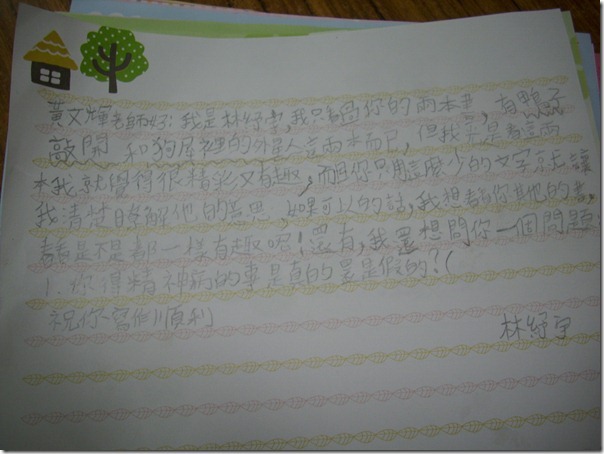 黃文輝老師好:我是林紓宇,我只看過你的兩本書,有鴨子
敲開 和狗屋裡的外星人這兩本而已,但我只是看這兩
本我就覺得很精彩又有趣,而且你只用這麼少的文字就讓
我清楚瞭解他的意思,如果可以的話,我想看你其他的書,
看看是不是都一樣有趣喔!還有,我還想問你一個問題:
1.你得精神病的事是真的還是假的?(
祝你~寫作順利
林紓宇